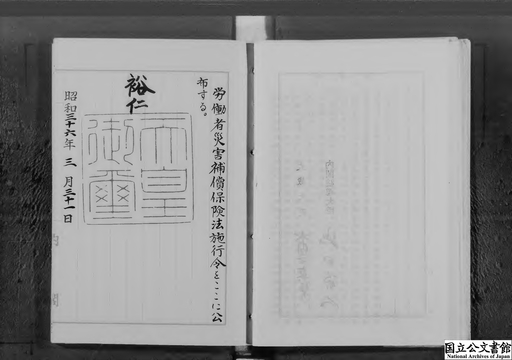 労働者災害補償保険法施行令をここに公
布する。
裕仁
天皇
御璽
昭和三十六年三月三十一日
内閣
国立公文書館
National Archives of Japan